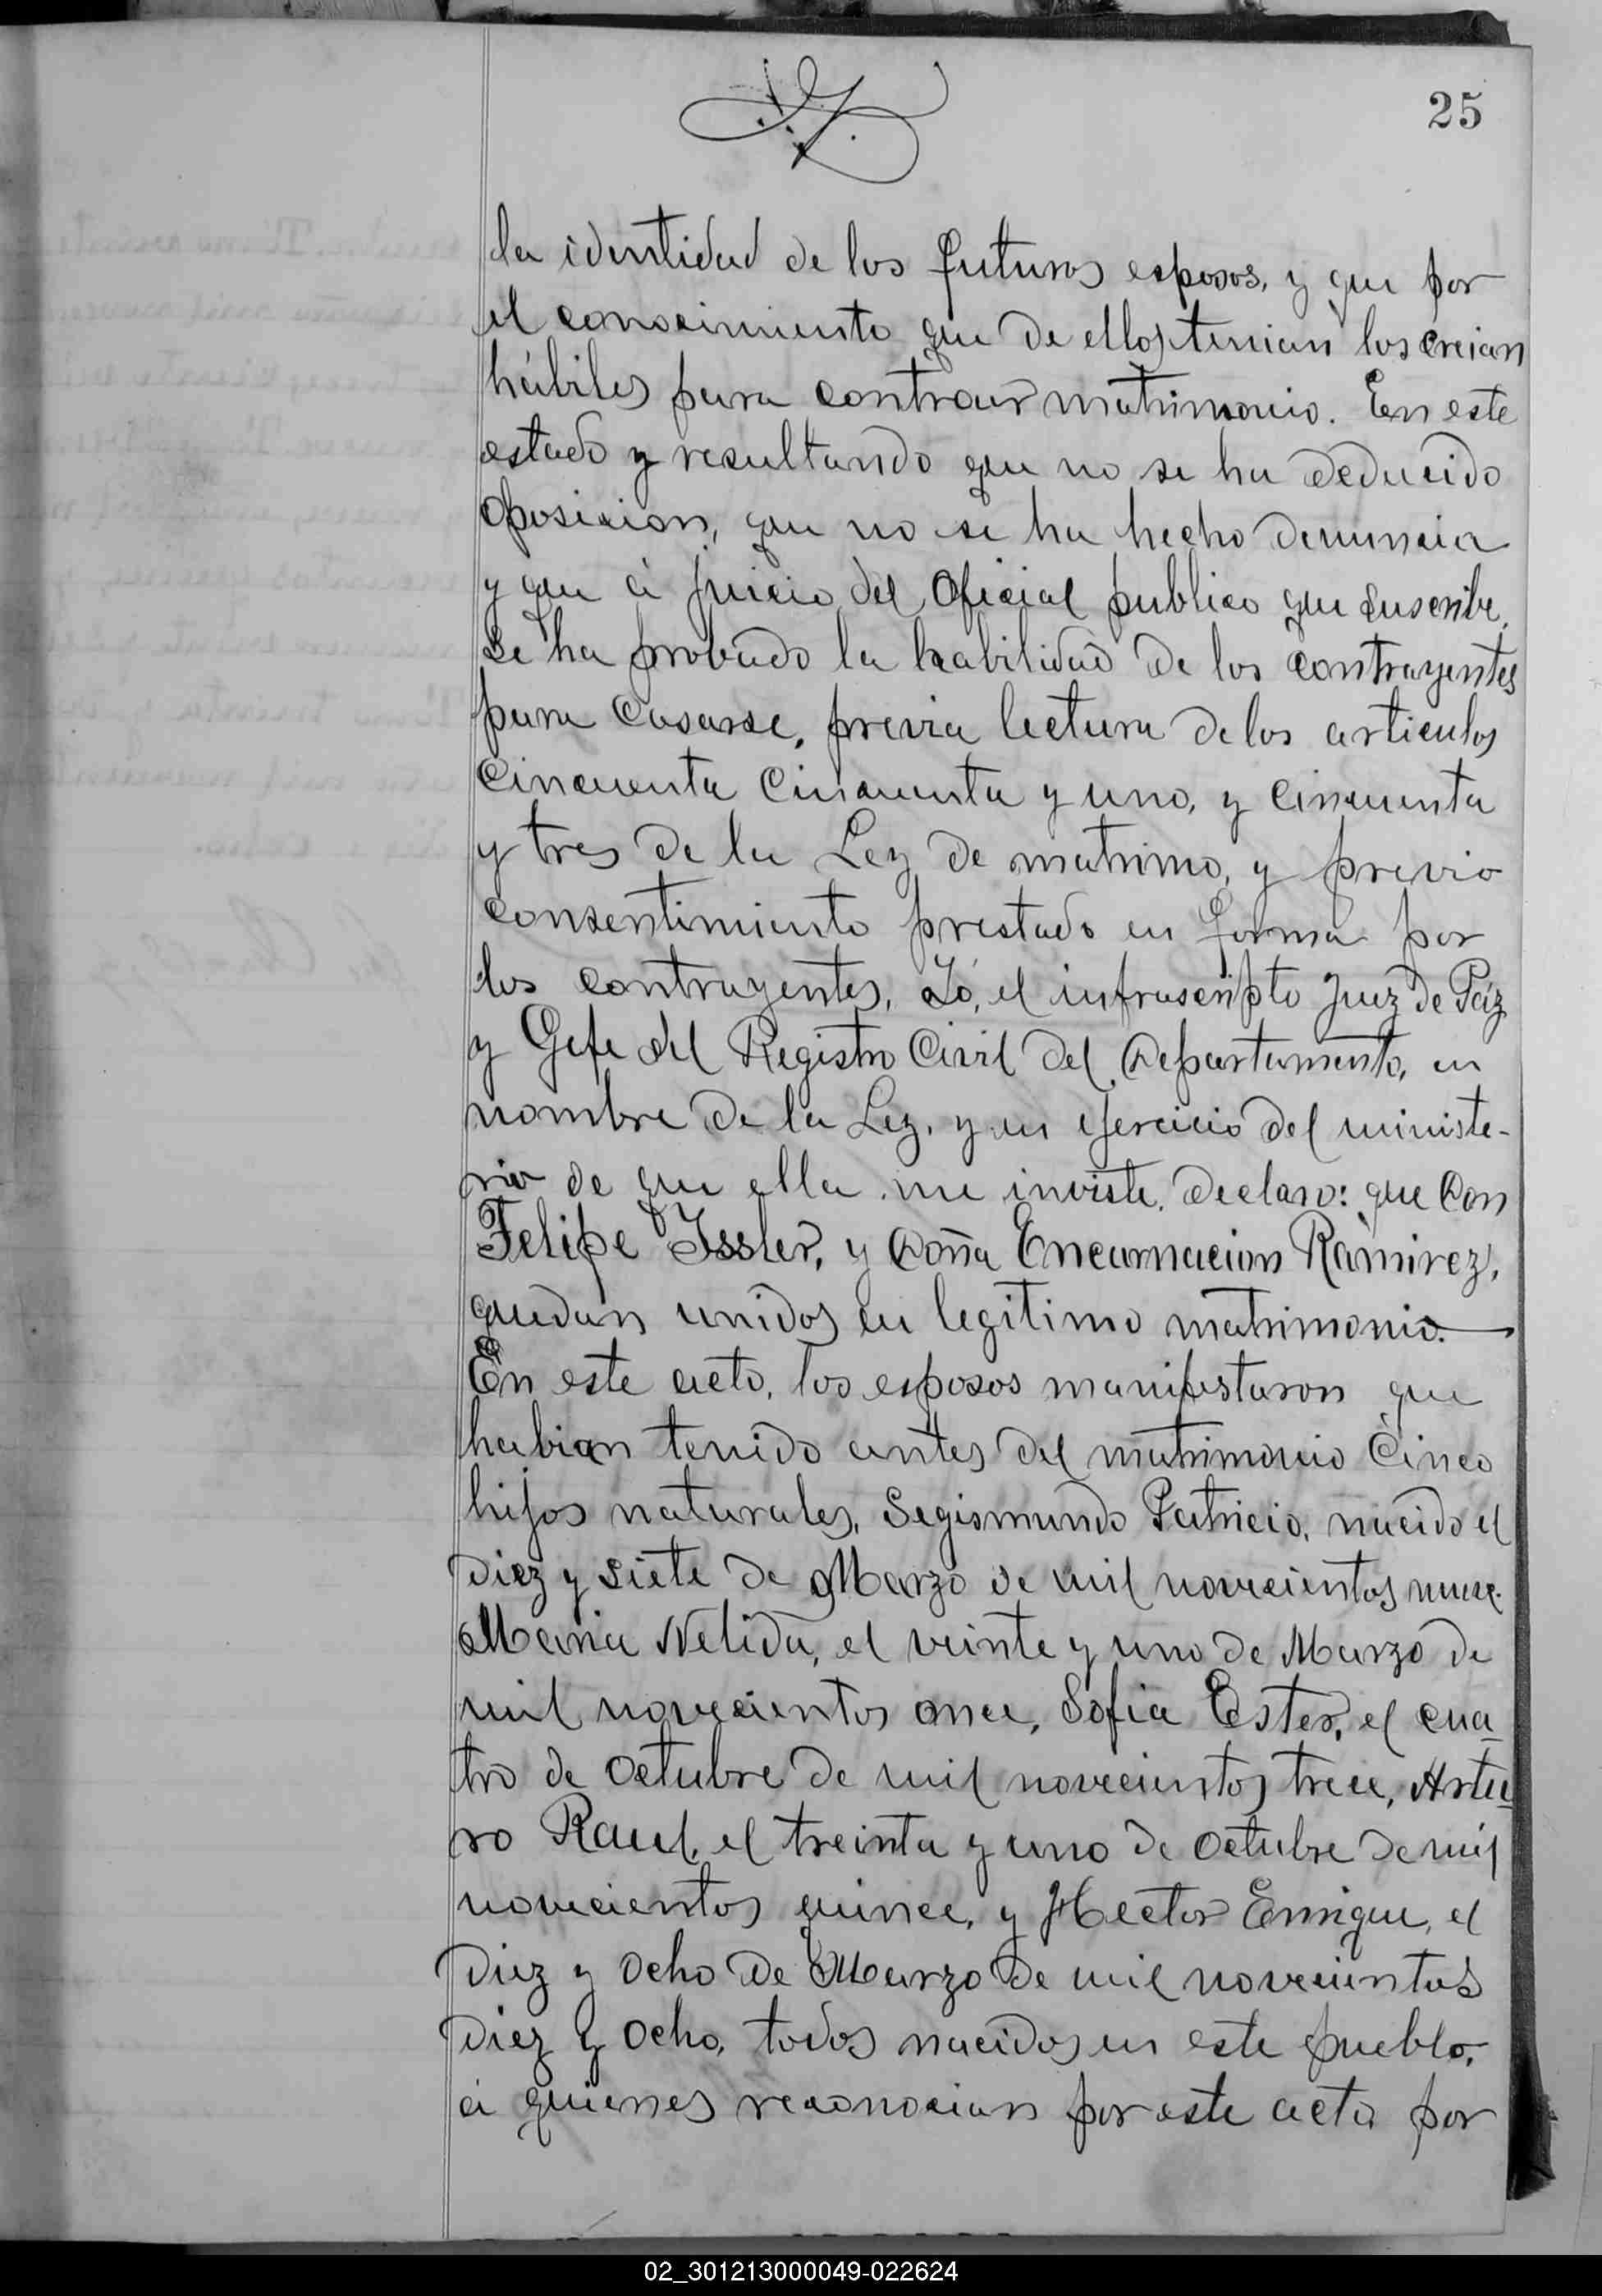 25
la identidad de los futuros esposos, y que por
el conocimiento que de ellos tenian los creian
hábiles para contraer matrimonio. En este
estado y resultando que no se ha deducido
oposicion, que no se ha hecho denuncia
y que á juicio del Oficial publico que suscribe,
se ha probado la habilidad de los contrayentes
para casarse, previa lectura de los articulos
cincuenta cincuenta y uno, y cincuenta
y tres de la Ley de matrimo, y previo
consentimiento prestado en forma por
los contrayentes, Yó, el infrascripto Juez de Páz
y Gefe del Registro Civil del Departamento, en
nombre de la Ley, y en ejercicio del ministe-
rio de que ella me inviste, declaro: que Don
Felipe Issler, y Doña Encarnacion Ramirez,
quedan unidos en legitimo matrimonio.
En este acto, los esposos manifestaron que
habian tenido antes del matrimonio Cinco
hijos naturales, Segismundo Patricio, nacido el
diez y siete de Marzo de mil novecientos nueve.
Maria Nelida, el veinte y uno de Marzo de
mil novecientos once, Sofia Ester, el cua-
tro de Octubre de mil novecientos trece, Artu-
ro Raul, el treinta y uno de Octubre de mil
novecientos quince, y Hector Enrique, el
diez y ocho de Marzo de mil novecientos
diez y ocho, todos nacidos en este pueblo,
á quienes reconocian por este acto por
02_301213000049-022624